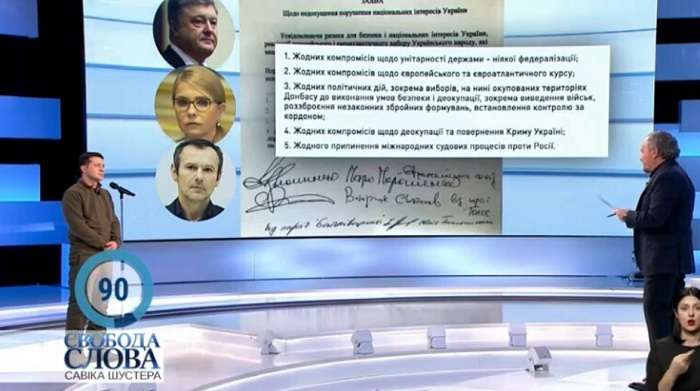 ЗАЯВА
Щодо недопущення порушення національних інтересів України
Усвідомлюючи ризики для безпеки і національних інтересів України,
1. Жодних компромісів щодо унітарності держави - ніякої федералізації;
2. Жодних компромісів щодо європейського та євроатлантичного курсу;
3. Жодних політичних дій, зокрема виборів, на нині окупованих територіях
Донбасу до виконання умов безпеки і деокупації, зокрема виведення військ,
роззброєння незаконних збройних формувань, встановлення контролю за
кордоном;
4. Жодних компромісів щодо деокупації та повернення Криму Україні;
5. Жодного припинення міжнародних судових процесів проти Росії.
90
СВОБОДА
СЛОВА
САВІКА ШУСТЕРА